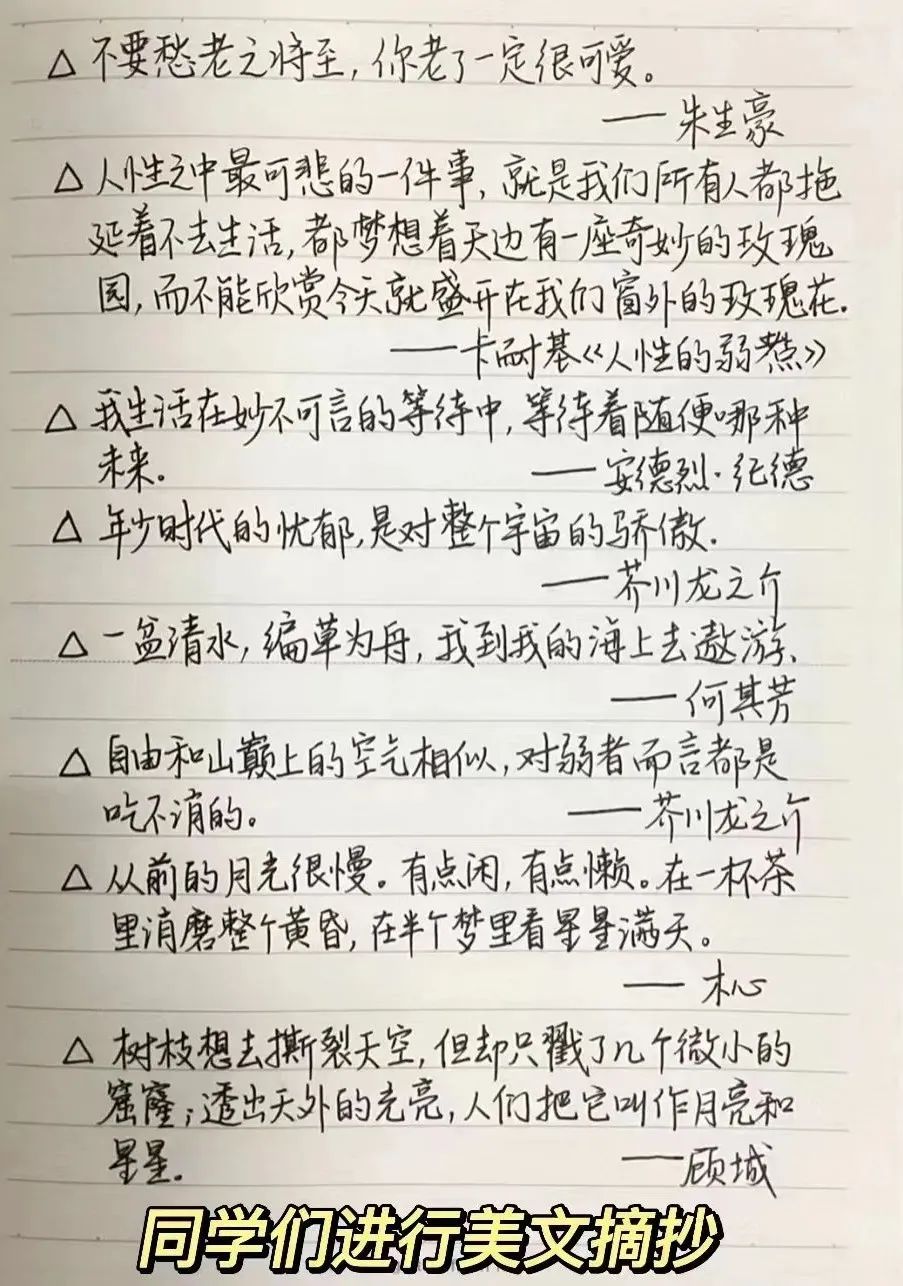 △ 不要愁老之将至，你老了一定很可爱。
——朱生豪
△ 人性之中最可悲的一件事，就是我们所有人都拖
延着不去生活，都梦想着天边有一座奇妙的玫瑰
园，而不能欣赏今天就盛开在我们窗外的玫瑰花.
——卡耐基《人性的弱点》
△ 我生活在妙不可言的等待中，等待着随便哪种
未来。 ——安德烈·纪德
△ 年少时代的忧郁，是对整个宇宙的骄傲.
——芥川龙之介
△ 一盆清水，编草为舟，我到我的海上去遨游、
——何其芳
△ 自由和山巅上的空气相似，对弱者而言都是
吃不消的。 ——芥川龙之介
△ 从前的月光很慢。有点闲，有点懒。在一杯茶
里消磨整个黄昏，在半个梦里看星星满天。
——木心
△ 树枝想去撕裂天空，但却只戳了几个微小的
窟窿；透出天外的光亮，人们把它叫作月亮和
星星. ——顾城
同学们进行美文摘抄